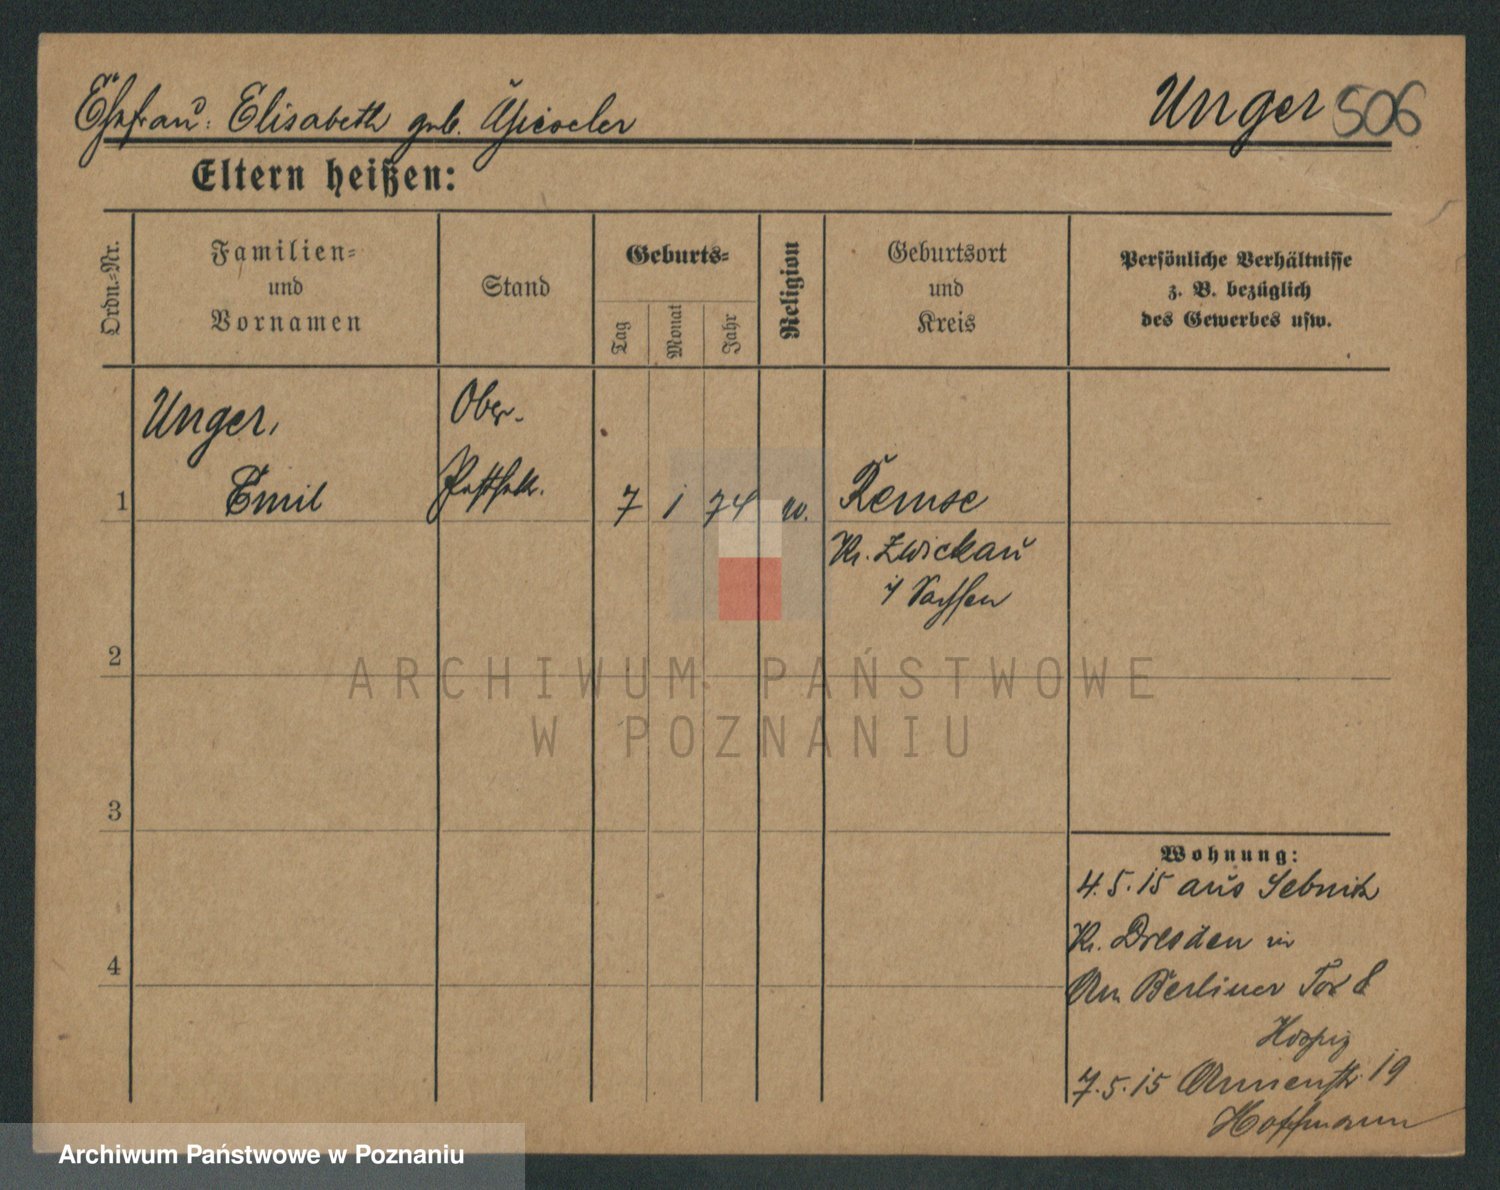 Ehefrau: Elisabeth geb. Unger 506
Eltern heißen:
Ordn.-Nr.
Familien-
und
Vornamen
Stand
Geburts-
Tag
Monat
Jahr
Religion
Geburtsort
und
Kreis
Persönliche Verhältnisse
z. B. bezüglich
des Gewerbes usw.
Unger, Ober-
1 Emil Postsekr. 7 1 74 Remse
Kr. Zwickau
i/ Sachsen
2
3
4
Wohnung:
4.5.15 aus Sebnitz
Kr. Dresden in
Am Berliner Tor 8
Hospiz
7.5.15 Annenstr. 19
Hoffmann
ARCHIWUM PAŃSTWOWE
W POZNANIU
Archiwum Państwowe w Poznaniu